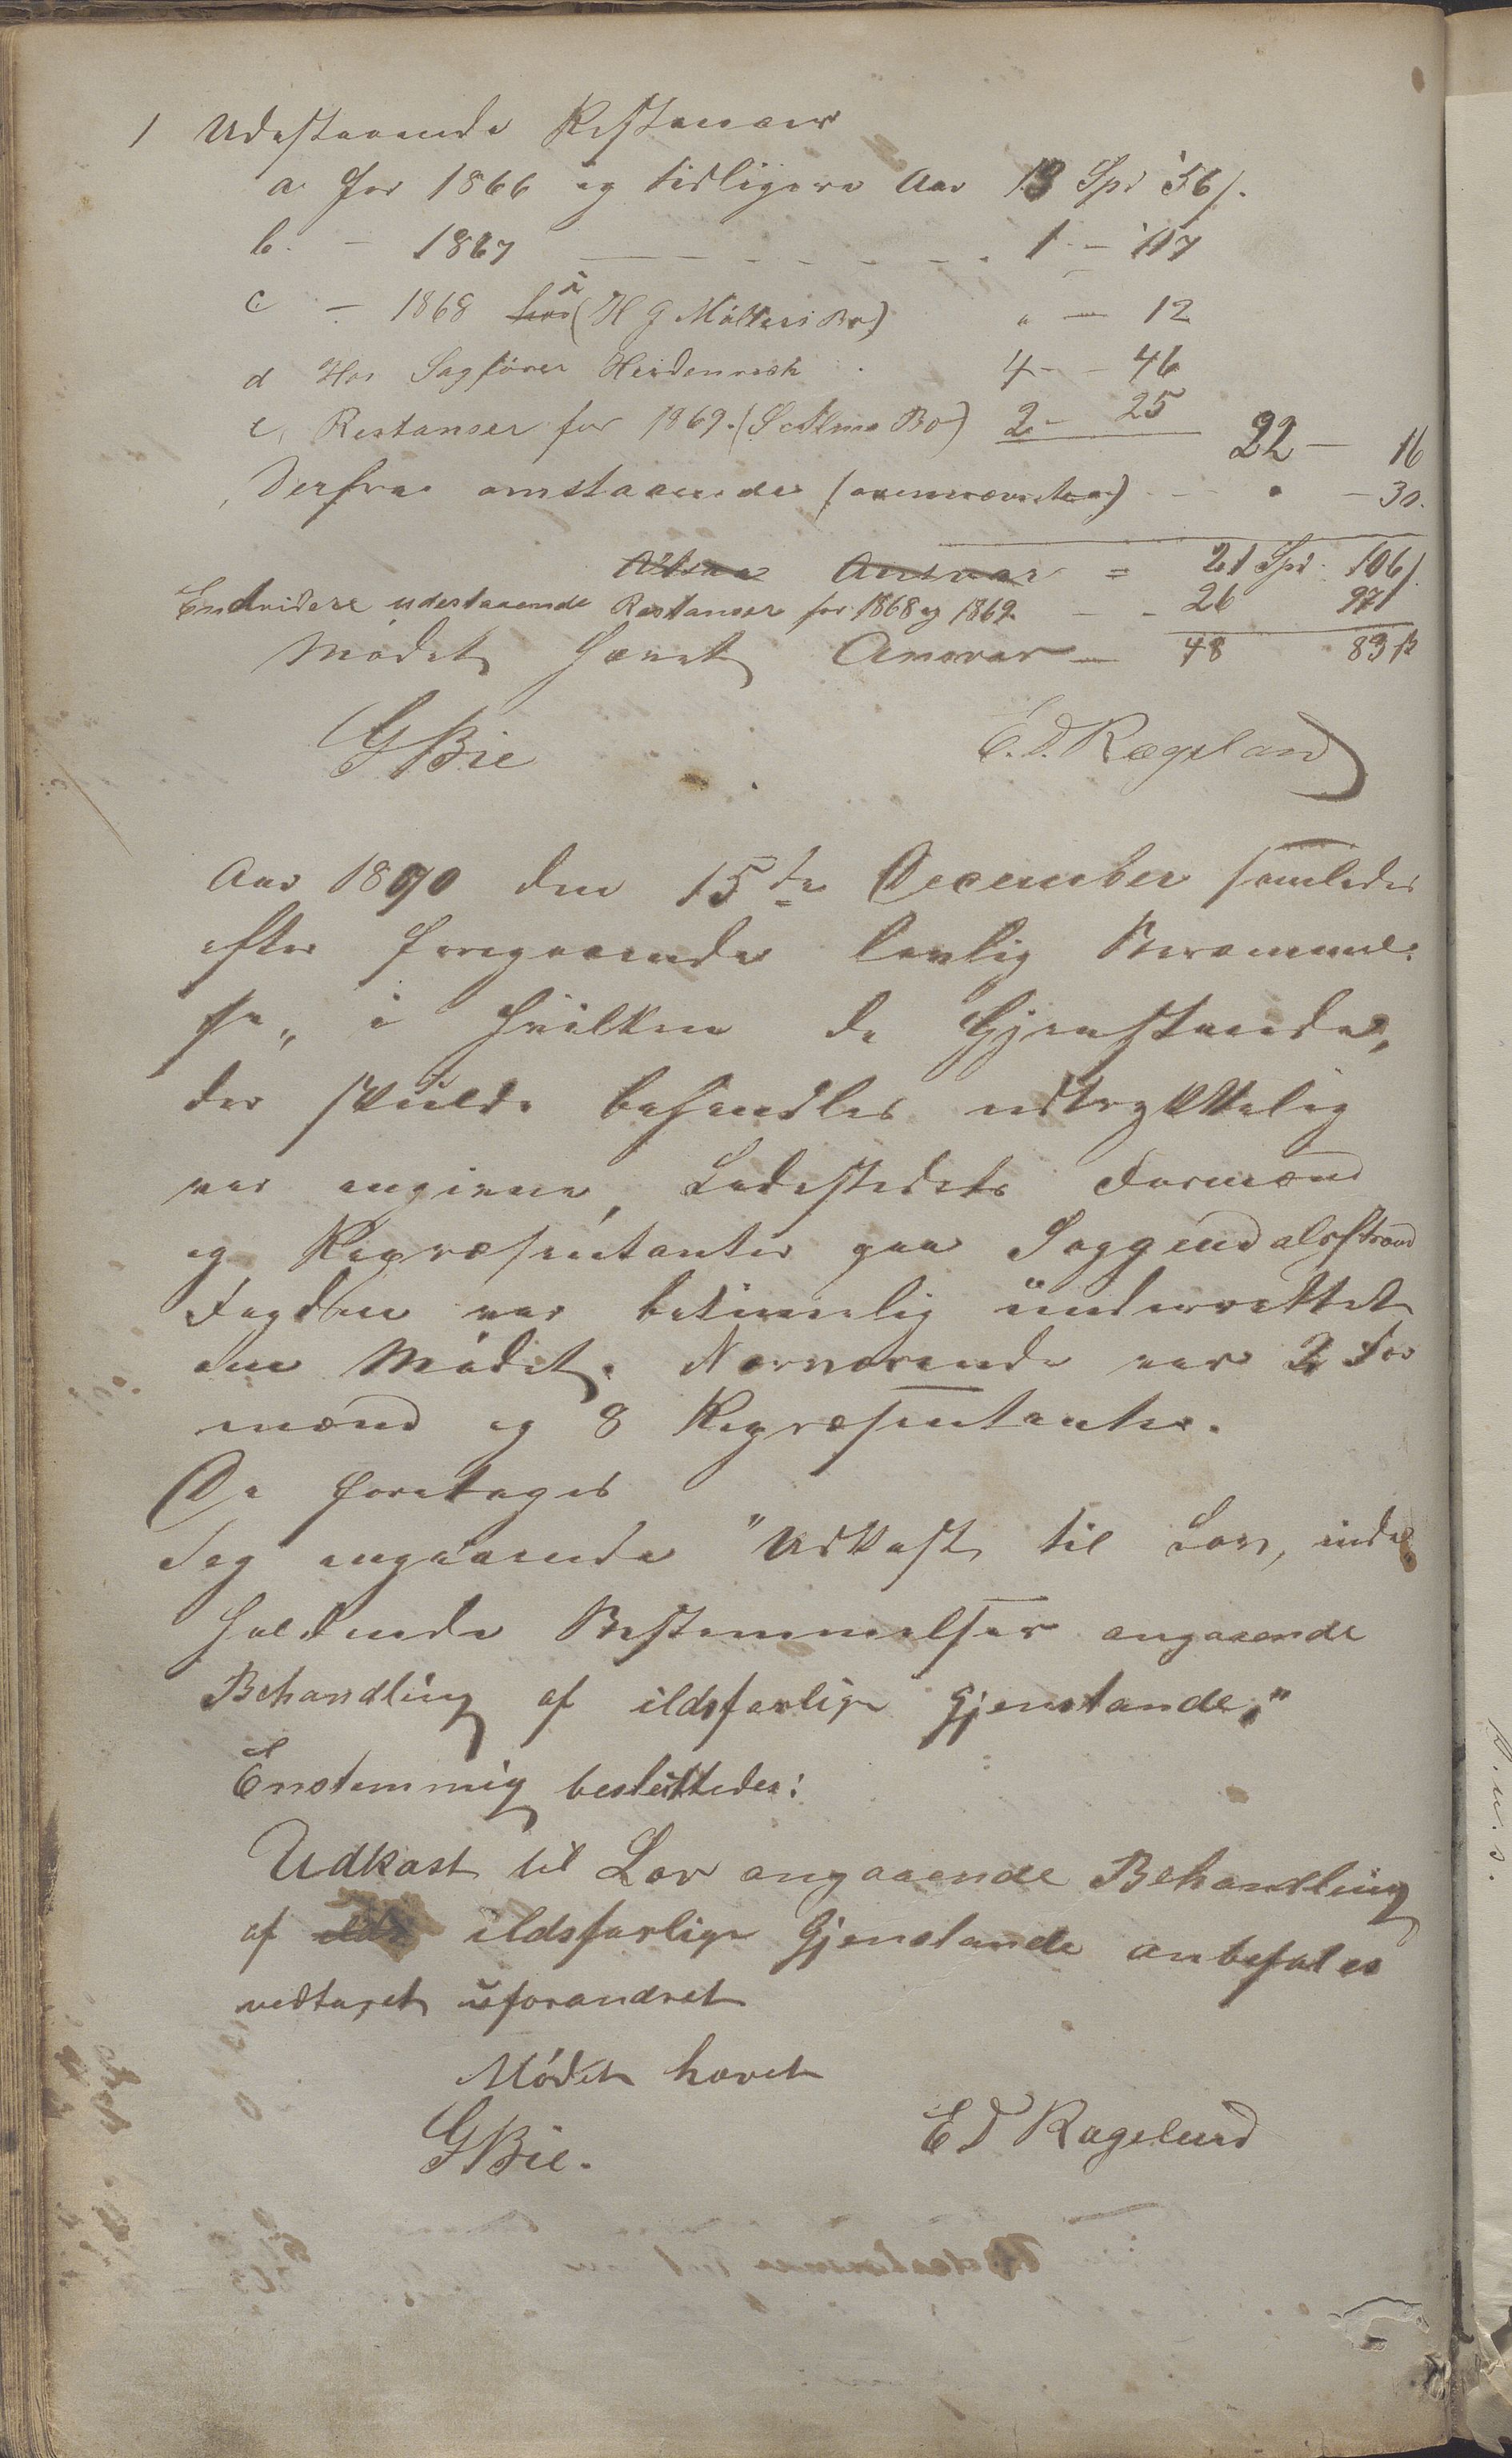 1 Udestaaende Restancer
a for 1866 og tidligere Aar 13 Spd 56 s.
b. - 1867 - - - - - - - . 1 - 117
c - 1868 (H G Möllers Bo) " - 12
d Hos Sagfører Heidenreich . 4 - - 46
e, Restanser for 1869. (Bo) 2 - 25 22 - 16
Derfra omstaaende - - " - 30.
Ansvar = 21 Spd. 106 s.
Endvidere udestaaende Restanser for 1868 og 1869. - - 26 97
Mødet hævet Ansvar - 48 83 s
G Bie E. D. Rægeland
Aar 1870 den 15de December samledes
efter foregaaende lovlig Berammel-
se, i hvilken de Gjenstande,
der skulde behandles udtrykkelig
var angivne, Ladestedets Formænd
og Repræsentanter paa Soggendalsstrand
Fogden var betimelig underrettet
om Mødet. Nærværende var 2 For
mænd og 8 Repræsentanter.
Da foretages
Sag angaaende "Udkast til Lov, inde
holdende Bestemmelser angaaende
Behandling af ildsfarlige Gjenstande,"
Enstemmig besluttedes:
Udkast til Lov angaaende Behandling
af ilds ildsfarlige Gjenstande anbefales
vedtaget uforandret
Mødet hævet
G Bie. E D Rageland